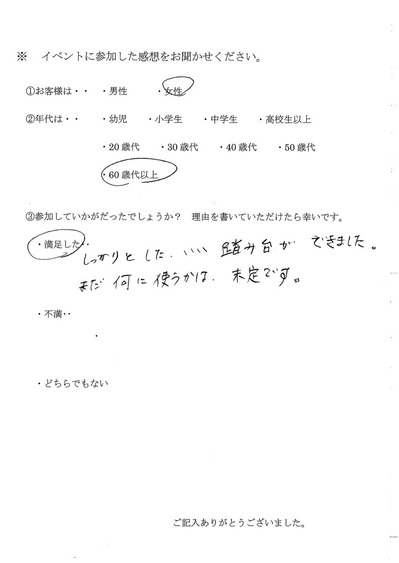 ※ イベントに参加した感想をお聞かせください。
①お客様は・・ ・男性 ・女性
②年代は・・ ・幼児 ・小学生 ・中学生 ・高校生以上
・20歳代 ・30歳代 ・40歳代 ・50歳代
・60歳代以上
③参加していかがだったでしょうか？ 理由を書いていただけたら幸いです。
・満足した・・
しっかりとした、いい踏み台ができました。
まだ何に使うかは、未定です。
・不満・・
・
・どちらでもない
ご記入ありがとうございました。